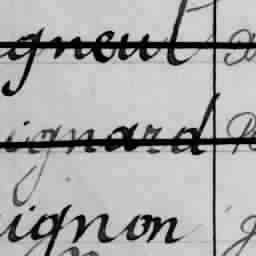 igneul
ignard
ignon